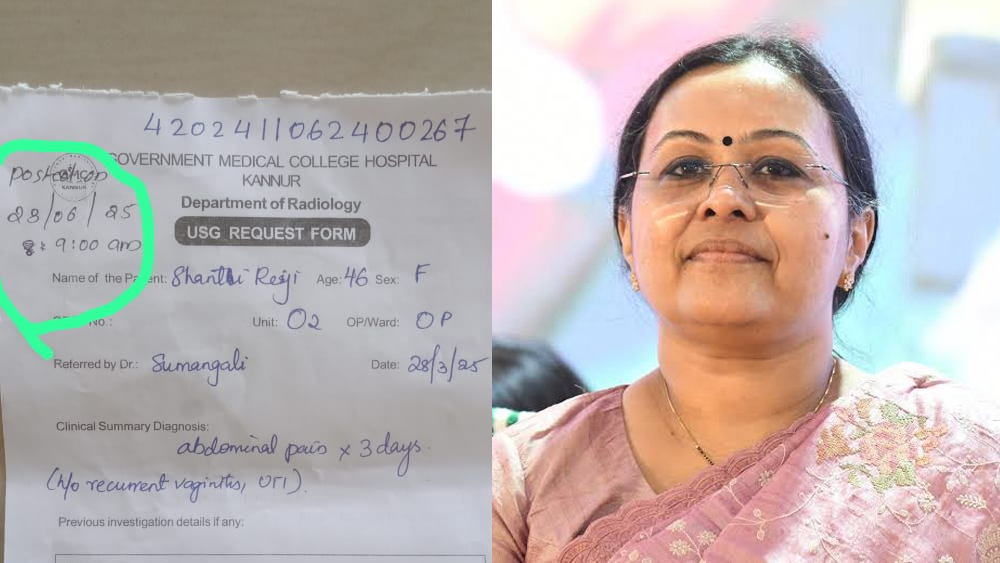 420241106 2400267
GOVERNMENT MEDICAL COLLEGE HOSPITAL
KANNUR
Department of Radiology
USG REQUEST FORM
KANNUR
23/06/25
9:00 am
Name of the Patient: Shanthi Regi Age: 46 Sex: F
No.: Unit: O2 OP/Ward: OP
Referred by Dr.: Sumangali Date: 28/3/25
Clinical Summary Diagnosis:
abdominal pain x 3 days.
(h/o recurrent vaginitis, UTI).
Previous investigation details if any: